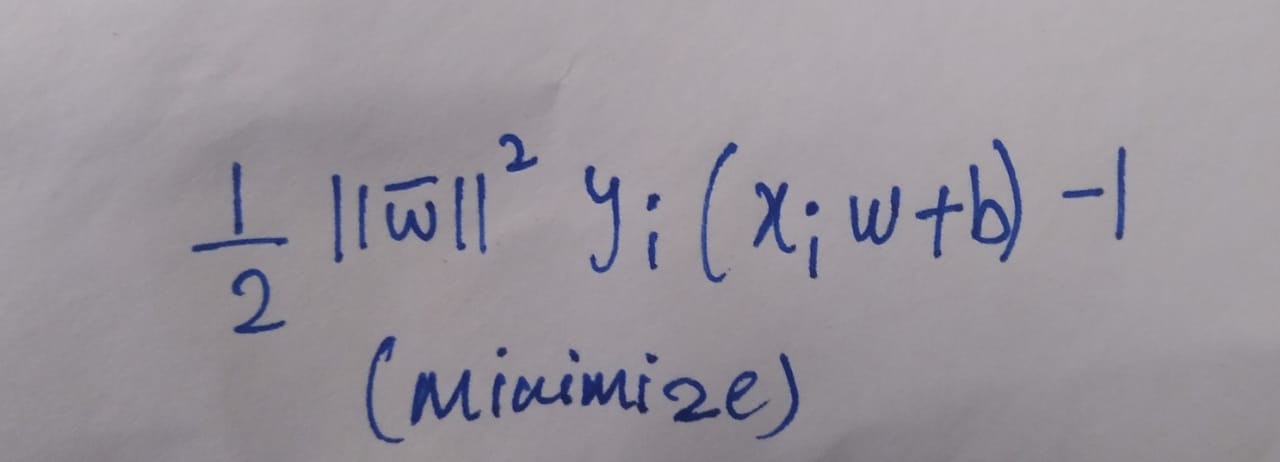 1/2 ||w̅||² yᵢ (xᵢ w + b) - 1
(Minimize)